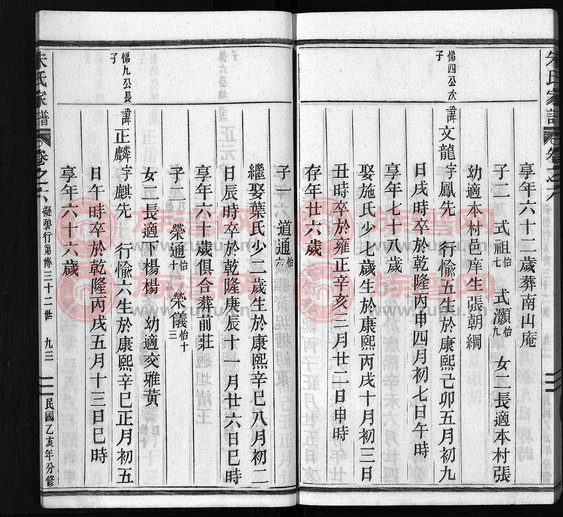 朱氏家譜 卷之六
享年六十二歲葬南山庵
子二 式祖 怡 式灝 怡 女二長適本村張
幼適本村邑庠生張朝綱
愉四公次子
諱文龍字鳳先 行愉五生於康熙己卯五月初九
日戌時卒於乾隆丙申四月初七日午時
享年七十八歲
娶施氏少七歲生於康熙丙戌十月初三日
丑時卒於雍正辛亥三月廿二日申時
存年廿六歲
子一 道通 怡六
繼娶葉氏少二歲生於康熙辛巳八月初二
日辰時卒於乾隆庚辰十一月廿六日巳時
享年六十歲俱合葬前莊
子二 榮通 怡十 榮儀 怡十三
女二長適下楊楊 幼適交雅黃
愉九公長子
諱正麟字麒先 行愉六生於康熙辛巳正月初五
日午時卒於乾隆丙戌五月十三日巳時
享年六十六歲
朱氏家譜 卷之六 凝碧行第傳三十二世 九三 民國乙亥年分修